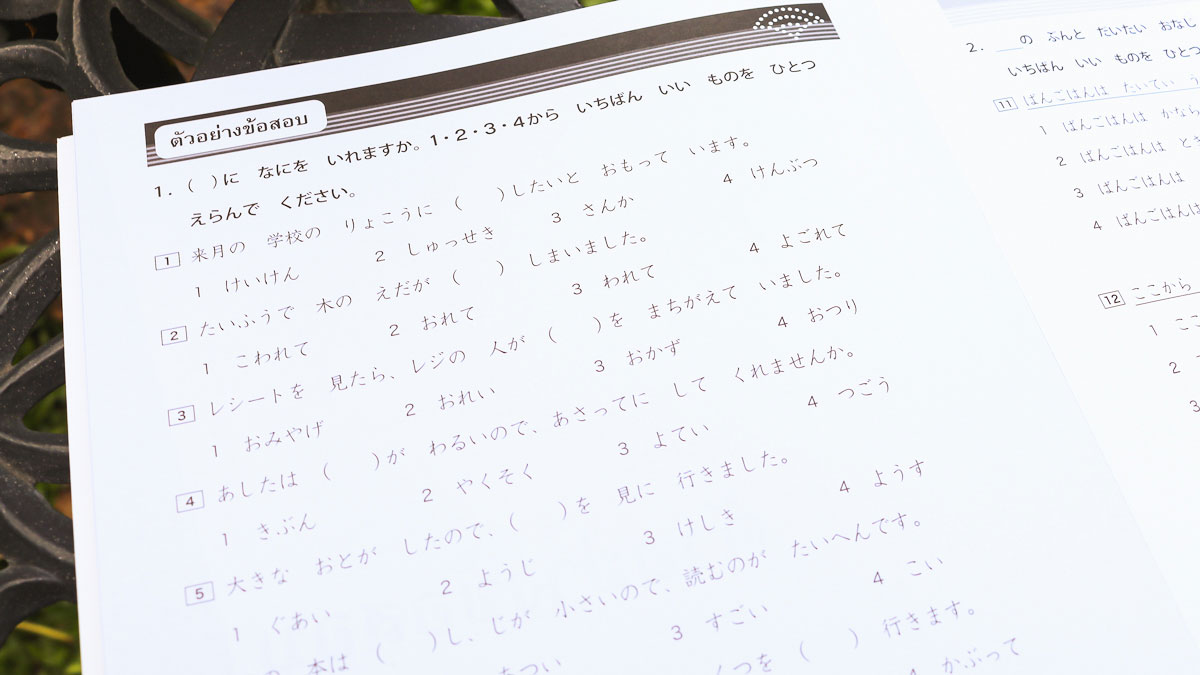 ตัวอย่างข้อสอบ
1. ( )に なにを いれますか。1・2・3・4から いちばん いい ものを ひとつ
えらんで ください。
1 来月の 学校の りょこうに ( )したいと おもって います。
1 けいけん 2 しゅっせき 3 さんか 4 けんぶつ
2 たいふうで 木の えだが ( ) しまいました。
1 こわれて 2 おれて 3 われて 4 よごれて
3 レシートを 見たら、レジの 人が ( )を まちがえて いました。
1 おみやげ 2 おれい 3 おかず 4 おつり
4 あしたは ( )が わるいので、あさってに して くれませんか。
1 きぶん 2 やくそく 3 よてい 4 つごう
5 大きな おとが したので、( )を 見に 行きました。
1 ぐあい 2 ようじ 3 けしき 4 ようす
本は ( )し、じが 小さいので、読むのが たいへんです。
3 すごい 4 こい
くつを ( ) 行きます。
かぶって
2. の ぶんと だいたい おなじ
いちばん いい ものを ひとつ
11 ばんごはんは たいてい
1 ばんごはんは かなら
2 ばんごはんは とき
3 ばんごはんは
4 ばんごはんは
12 ここから
1 ここ
2
3